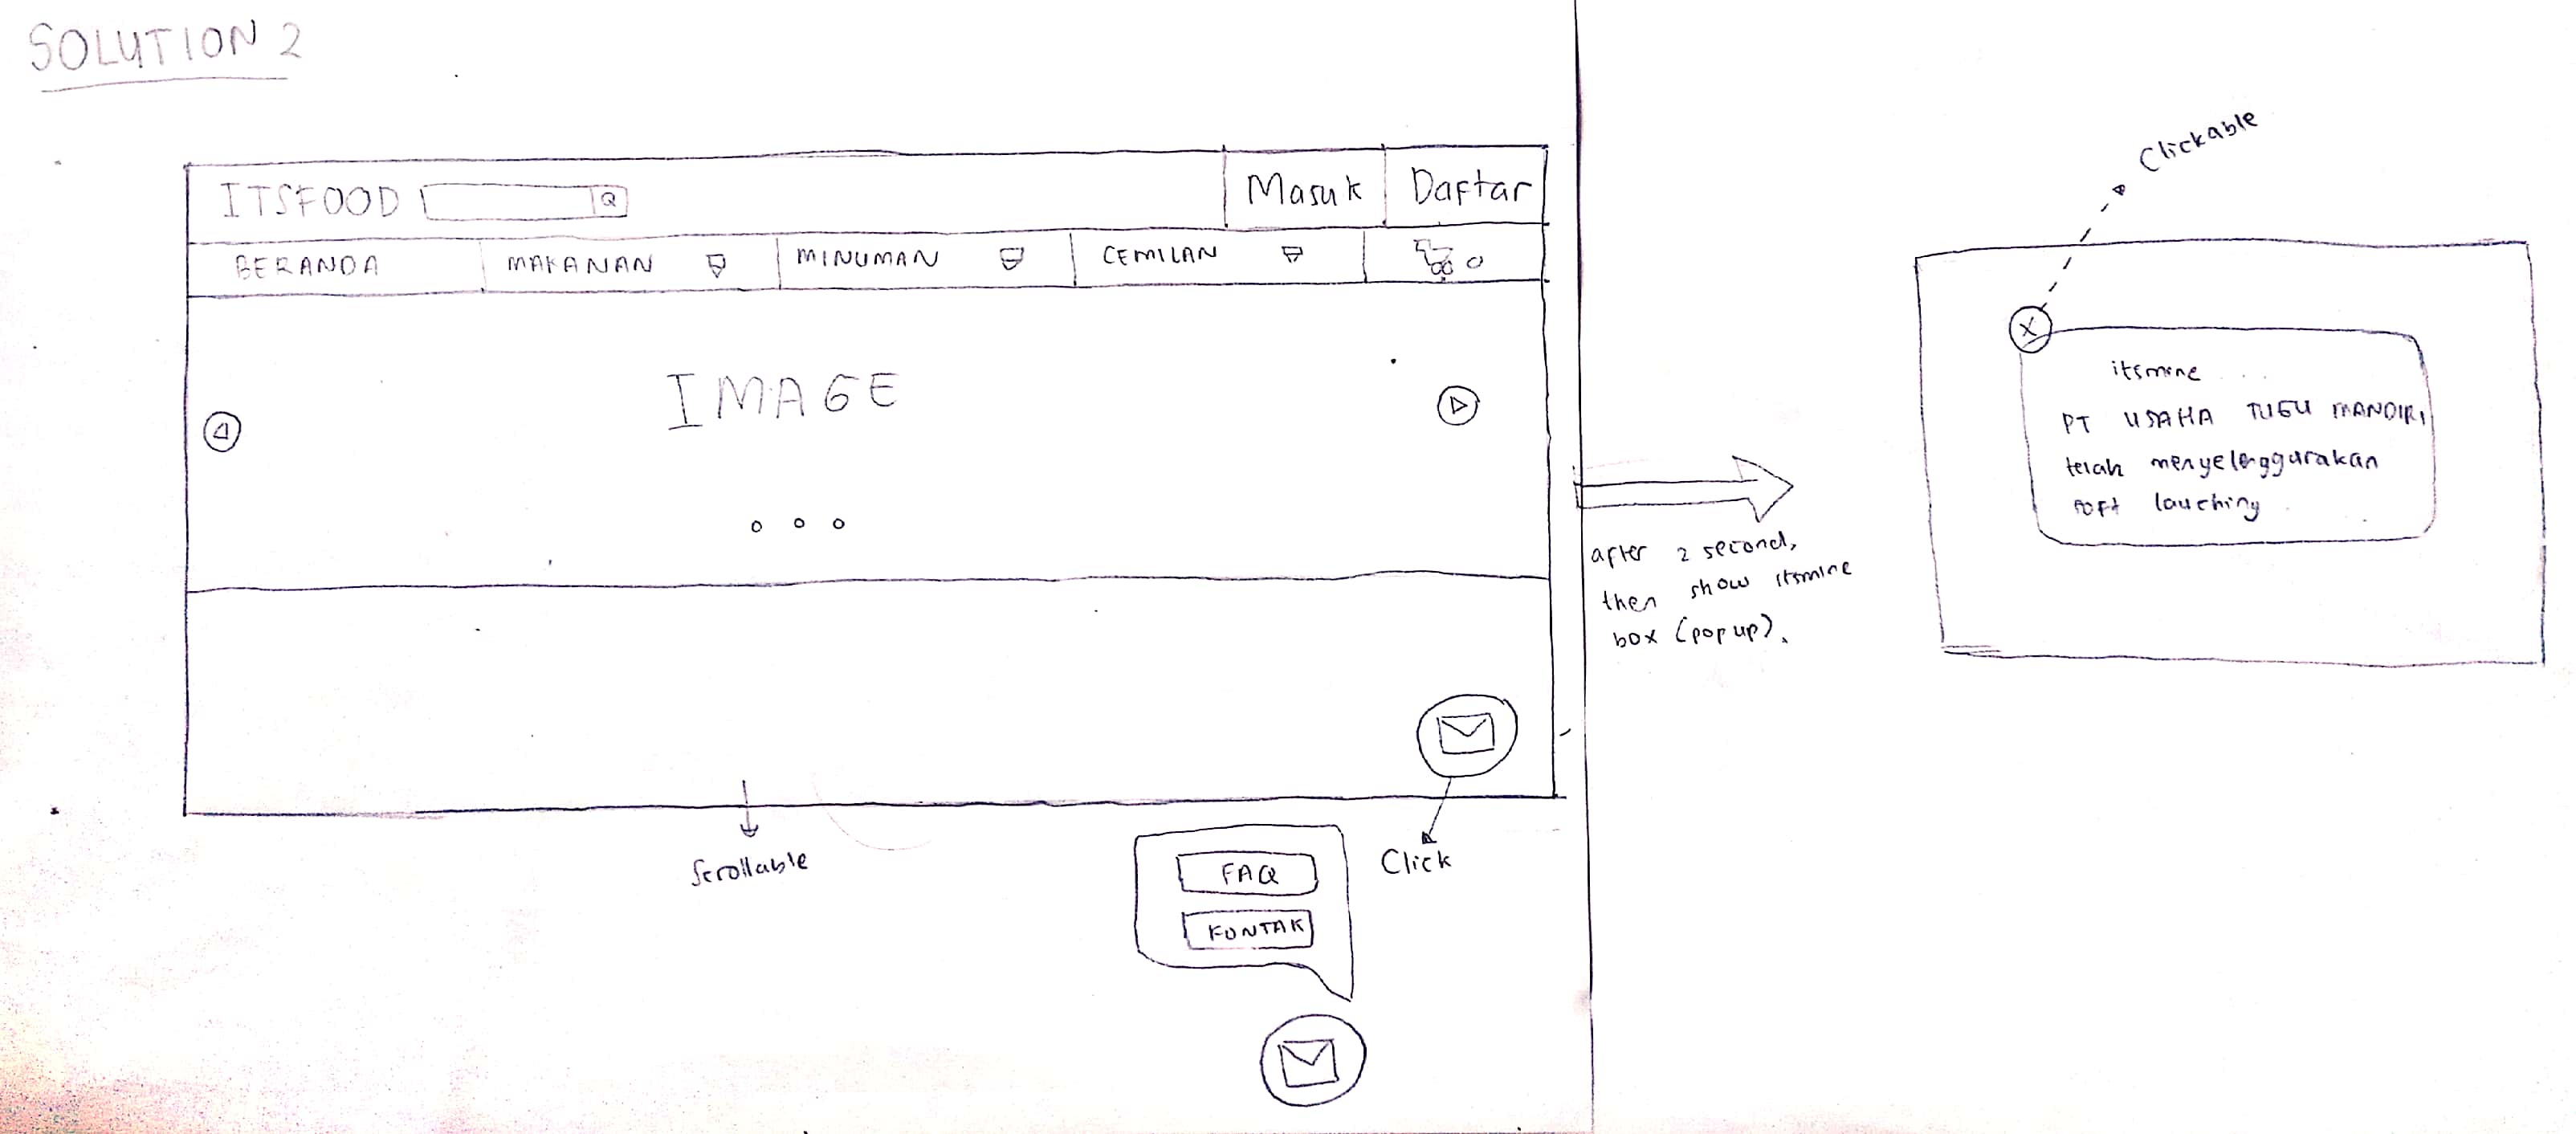 SOLUTION 2
ITSFOOD
Masuk
Daftar
BERANDA
MAKANAN
MINUMAN
CEMILAN
0
IMAGE
Scrollable
Click
FAQ
KONTAK
after 2 second,
then show itsmine
box (pop up).
Clickable
X
itsmine ...
PT USAHA TUGU MANDIRI
telah menyelenggarakan
soft lauching